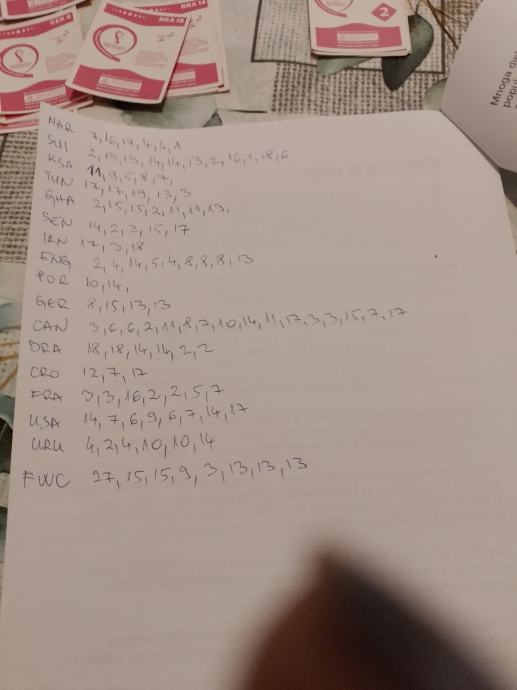 GER 8
BRA 18
BRA 14
2
Mnoga
popul
MAR 7,16,17,4,4,1
SUI 2,19,19,14,14,13,2,16,1,18,6
KSA 11,9,5,8,7,
TUN 17,17,19,13,3
GHA 2,15,15,2,11,11,19,
SEN 14,2,2,15,17
IRN 17,3,18
ENG 2,4,14,5,4,8,8,8,13
POR 10,14,
GER 8,15,13,13
CAN 3,6,6,2,11,8,7,10,14,11,17,3,3,15,7,17
BRA 18,18,14,14,2,2
CRO 12,7,17
FRA 3,3,16,2,2,5,7
USA 14,7,6,9,6,7,14,17
URU 4,2,4,10,10,14
FWC 27,15,15,9,3,13,13,13